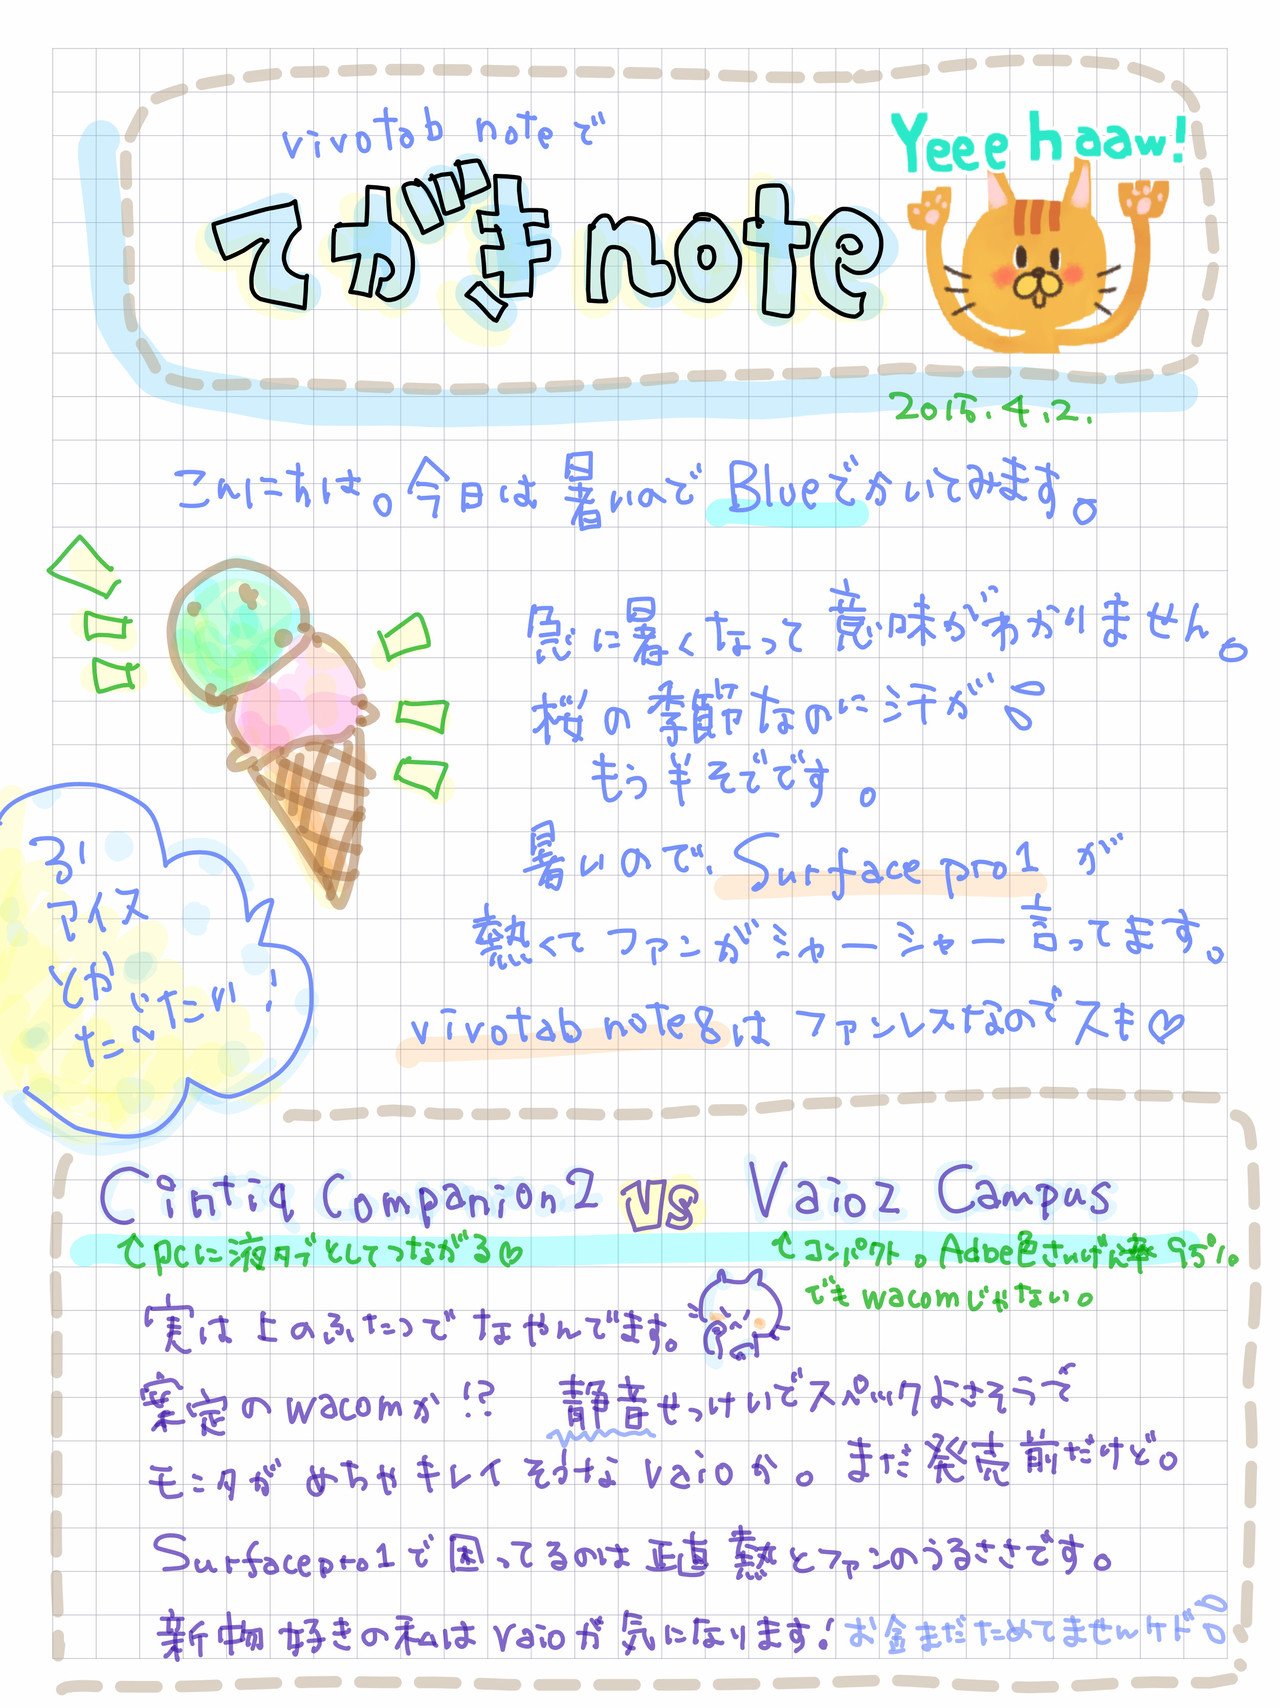 vivotab noteで
てがきnote
Yeee haaw!
2015.4.2.
こんにちは。今日は暑いのでBlueでかいてみます。
急に暑くなって意味がわかりません。
桜の季節なのに汗が
もう半そでです。
暑いので、Surface pro1が
熱くてファンがシャーシャー言ってます。
vivotab note8はファンレスなのでスキ♡
アイス
とか
たべたい!
Cintiq Companion2 VS Vaio z Campus
↑pcに液タブとしてつながる♡
↑コンパクト。Adbe色さいげん率95%。
でもwacomじゃない。
実は上のふたつでなやんでます。
案定のwacomか!? 静音せっけいでスペックよさそうで
モニタがめちゃキレイそうなvaioか。まだ発売前だけど。
Surface pro1で困ってるのは正直熱とファンのうるささです。
新物好きの私はvaioが気になります!お金まだためてませんケド